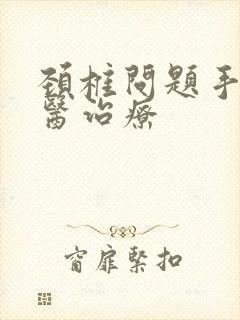 頚椎問題手
醫治療
窗扉緊扣